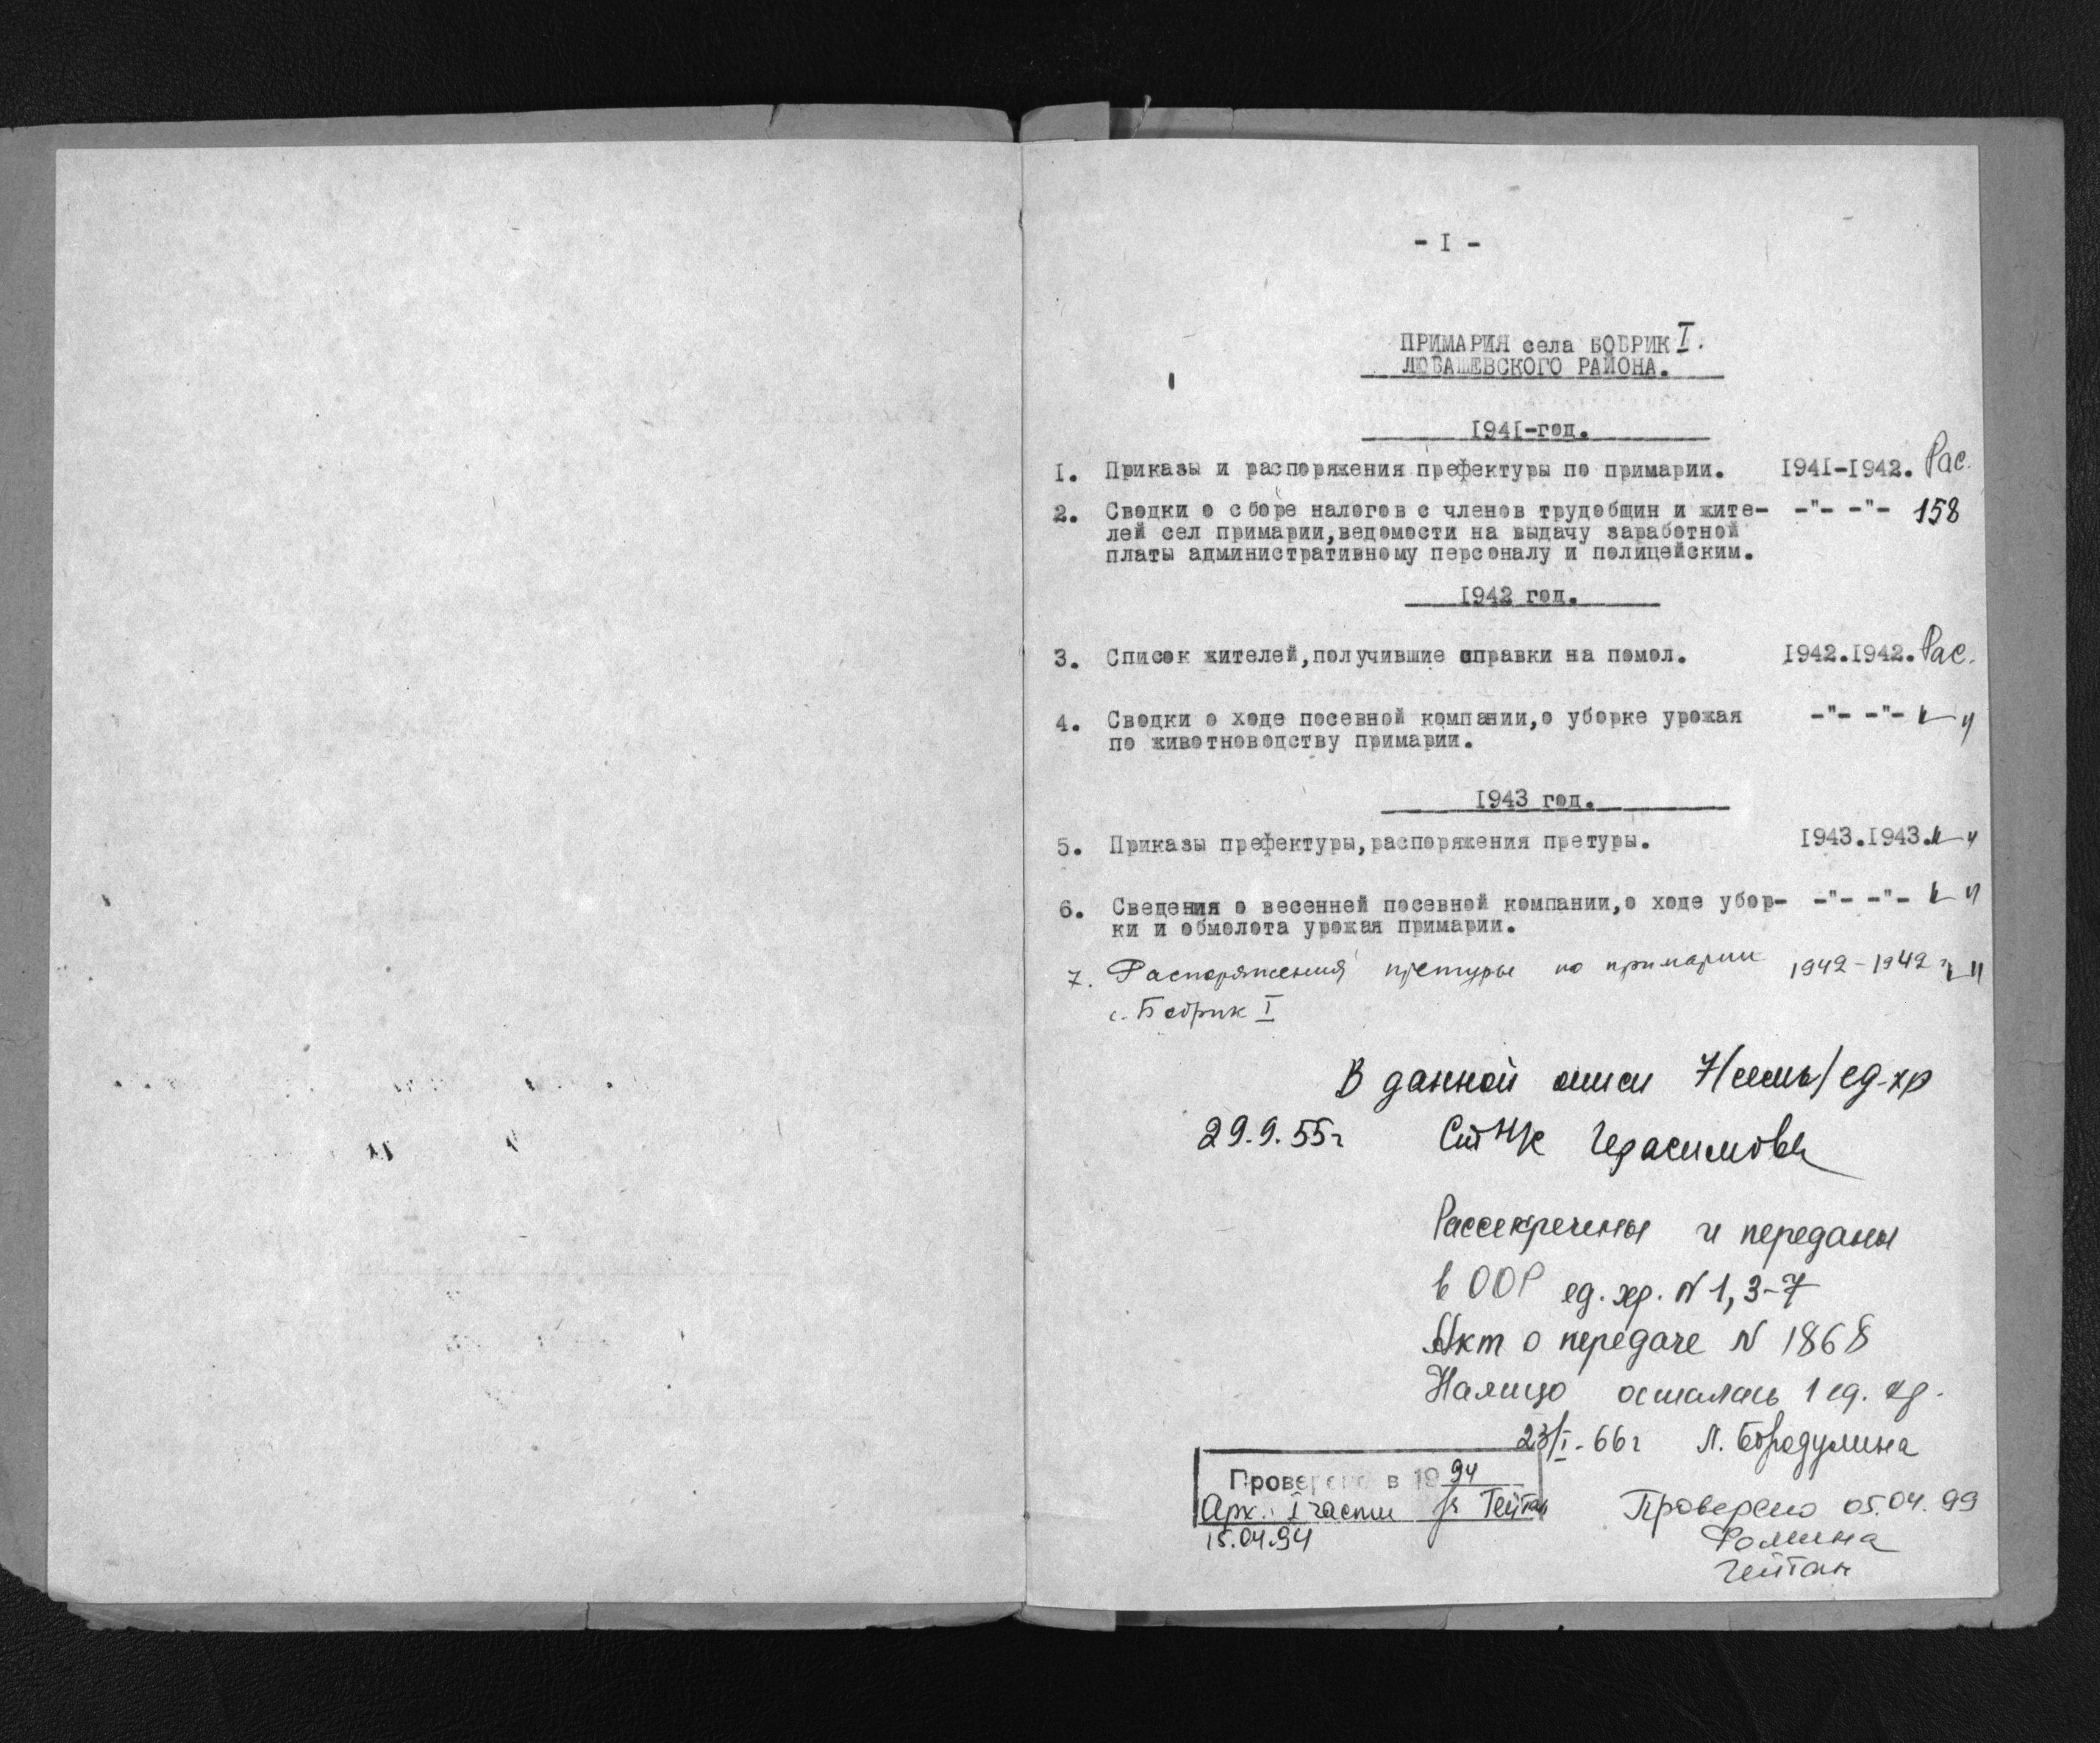 - I -
ПРИМАРИЯ села БОБРИК I.
ЛЮБАШЕВСКОГО РАЙОНА.
I94I-год.
I. Приказы и распоряжения префектуры по примарии. I94I-I942. Рас.
2. Сводки о сборе налогов с членов трудобщин и жите- -"- -"- 158
лей сел примарии,ведомости на выдачу заработной
платы административному персоналу и полицейским.
I942 год.
3. Список жителей,получившие справки на помол. I942.I942. Рас.
4. Сводки о ходе посевной компании,о уборке урожая -"- -"- "—"
по животноводству примарии.
I943 год.
5. Приказы префектуры,распоряжения претуры. I943.I943. "—"
6. Сведения о весенней посевной компании,о ходе убор- -"- -"- "—"
ки и обмолота урожая примарии.
7. Распоряжения претуры по примарии 1942-1942 г. "—"
с. Бобрик I
В данной описи 7/семь/ед-хр
29.9.55г Ст н/с Герасимова
Рассекречены и переданы
в ООР ед. хр. N 1, 3-7
Акт о передаче N 1868
Налицо осталась 1 ед. хр.
23/I-66г Л. Бородулина
Проверено в 1994
Арх. I части Гейтан
15.04.94
Проверено 05.04.99
Фомина
Гейтан